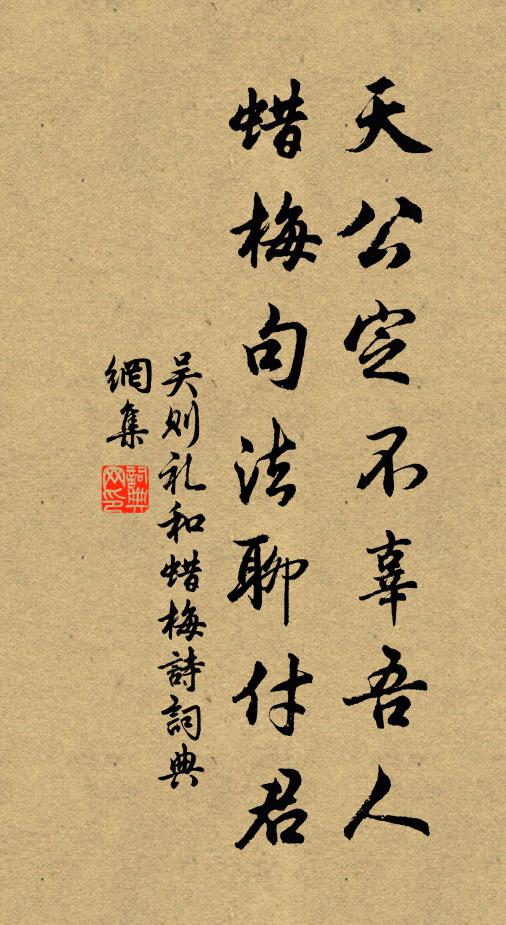 天公定不辜吾人
蜡梅句法聊付君
吴则礼和蜡梅詩詞典
網集
詞典
网印